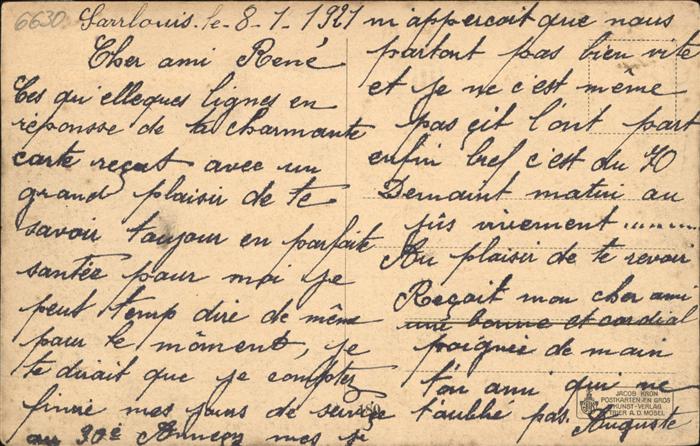 6630
Sarrlouis. le 8-1-1921
Cher ami René
Ces qu'elleques lignes en
réponsse de ta charmante
carte reçut avec un
grand plaisir de te
savoir toujour en parfaite
santée pour moi je
peut temp dire de même
pour le môment, je
te dirait que je comptez
finire mes jours de service
au 30è mes si
m'apperçoit que nous
partont pas bien vite
et je ne c'est même
pas çit l'ont part
enfin bref c'est du 70
Demaint matin au
jûs vivement ..........
Au plaisir de te revoir
Reçoit mon cher ami
une bonne et cordial
poignée de main
t'on ami qui ne
t'oublie pas. Auguste
JACOB KRON
POSTKARTEN-EN GROS
KUNST-VERLAG
TRIER A. D. MOSEL